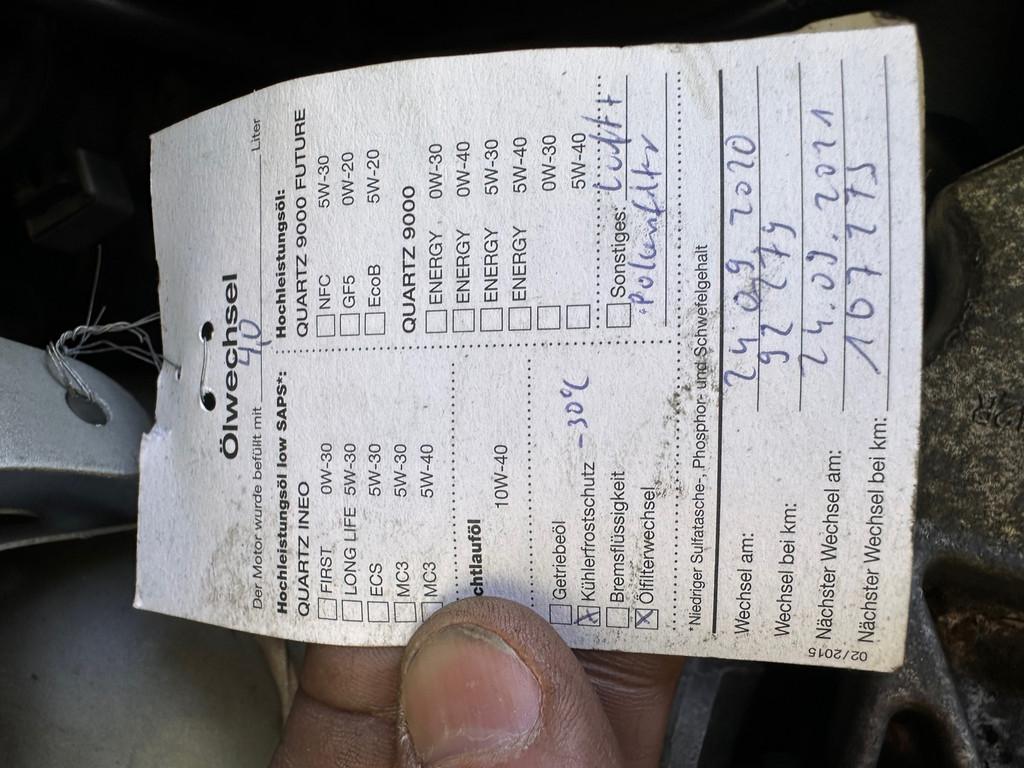 Ölwechsel
Der Motor wurde befüllt mit 4,0 Liter
Hochleistungsöl low SAPS*:
QUARTZ INEO
FIRST 0W-30
LONG LIFE 5W-30
ECS 5W-30
MC3 5W-30
MC3 5W-40
chtlauföl
10W-40
Getriebeöl
Kühlerfrostschutz -30°C
Bremsflüssigkeit
Ölfilterwechsel
Hochleistungsöl:
QUARTZ 9000 FUTURE
NFC 5W-30
GF5 0W-20
EcoB 5W-20
QUARTZ 9000
ENERGY 0W-30
ENERGY 0W-40
ENERGY 5W-30
ENERGY 5W-40
0W-30
5W-40
Sonstiges: Luft+
Pollenfilter
*Niedriger Sulfatasche-, Phosphor- und Schwefelgehalt
Wechsel am: 24.09.2020
Wechsel bei km: 92
Nächster Wechsel am: 24.09.2021
Nächster Wechsel bei km: 107275
02/2015